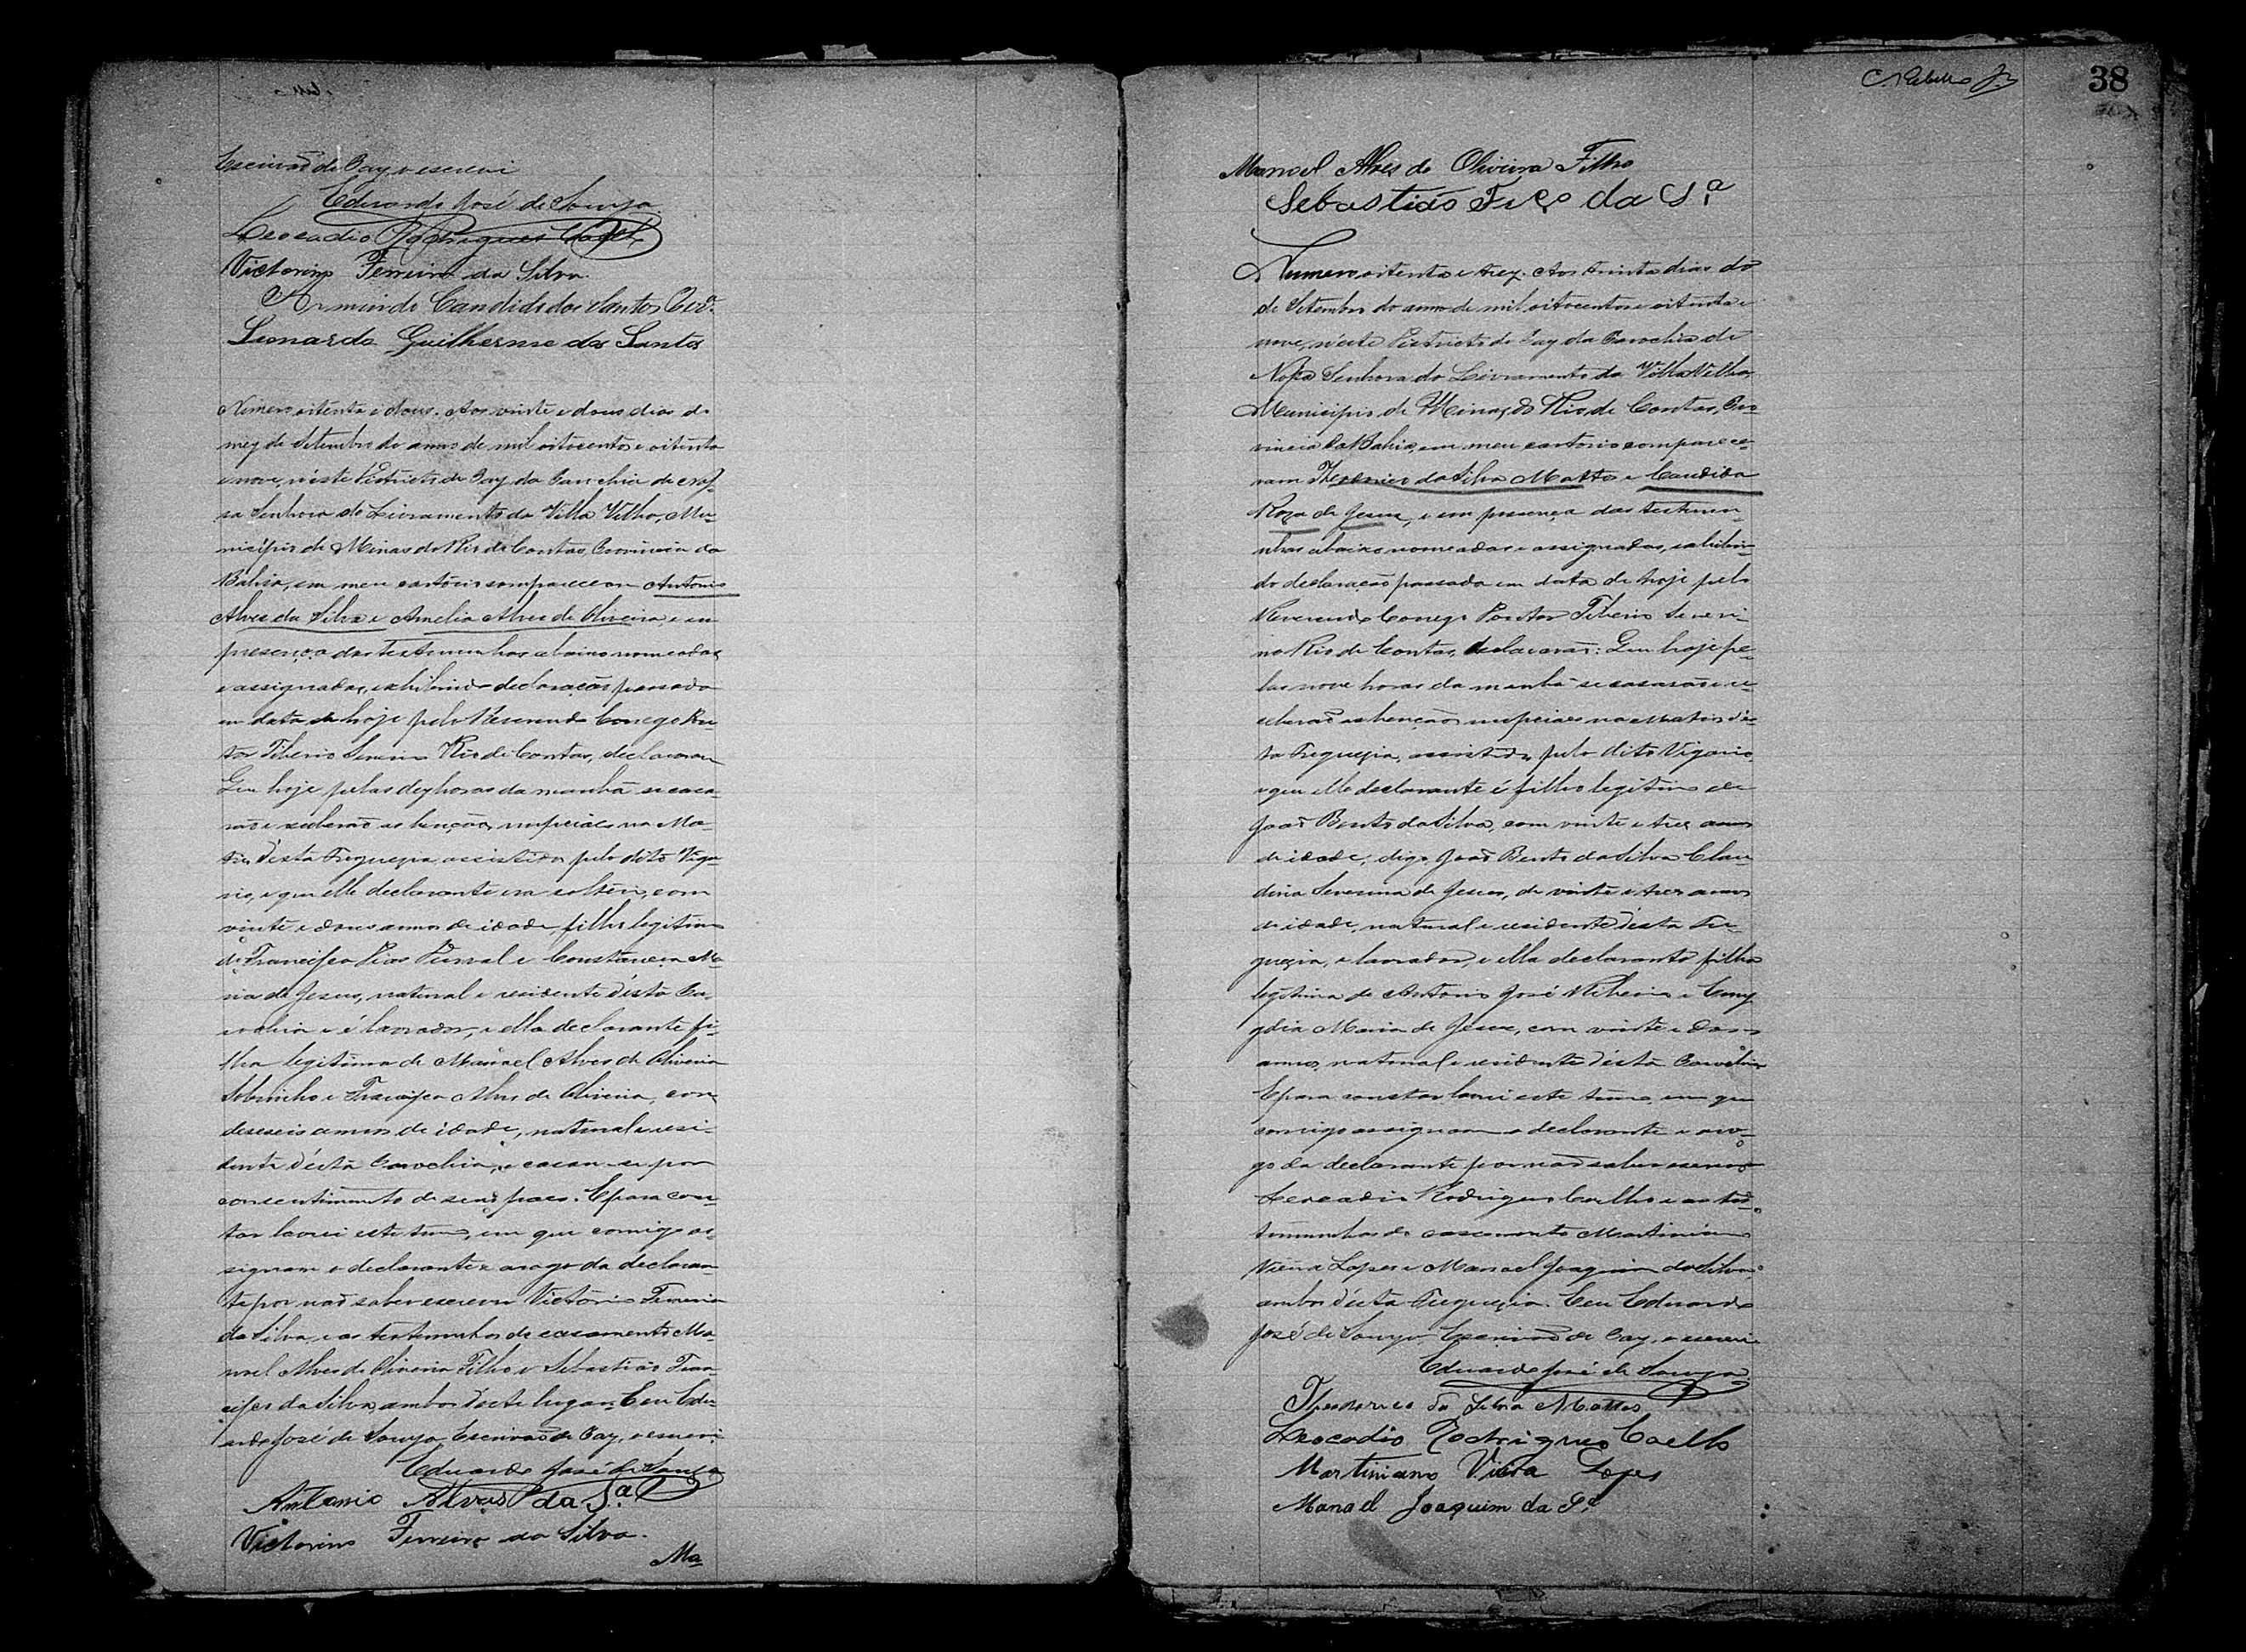 Escrivaõ de Paz, o escrevi
Eduardo José de Souza
Leocadio Rodrigues Coelho
Victorino Ferreira da Silva
Armindo Candido dos Santos
Leonardo Guilherme dos Santos
Numero oitenta e dous. Aos vinte e dous dias do
mez de Setembro do anno de mil oitocentos e oitenta
e nove, n'este Districto de Paz da Parochia de Nos-
sa Senhora do Livramento da Villa Velha, Mu-
nicipio de Minas do Rio de Contas, Provincia da
Bahia, em meu cartorio compareceram Antonio
Alves da Silva e Amelia Alves de Oliveira, e em
presença das testemunhas abaixo nomeadas
e assignadas, exhibindo declaração passada
em data de hoje pelo Reverendo Conego Dou-
tor Tiberio Severino Rio de Contas, declararam
Que hoje pelas dez horas da manhã se casa-
raõ e receberaõ as bençaõs nupciaes na Ma-
triz d'esta Freguezia, assistidos pelo dito Viga-
rio, e que elle declarante era solteiro, com
vinte e dous annos de idade, filho legitimo
de Francisco Dias Durval e Constancia Ma-
ria de Jesus, natural e residente d'esta Pa-
rochia e é lavrador, e ella declarante fi-
lha legitima de Manoel Alves de Oliveira
Sobrinho e Francisca Alves de Oliveira, com
deseseis annos de idade, natural e resi-
dente d'esta Parochia, e casam-se por
consentimento de seus paes. E para cons-
tar lavrei este termo, em que comigo as-
signam o declarante e a rogo da declaran-
te por naõ saber escrever Victorino Ferreira
da Silva, e as testemunhas de casamento Ma-
noel Alves de Oliveira Filho e Sebastião Fran-
cisco da Silva, ambos d'este lugar. E eu Edu-
ardo José de Souza, Escrivaõ de Paz, o escrevi.
Eduardo José de Souza
Antonio Alves da Sª
Victorino Ferreira da Silva.
Ma
38
Manoel Alves de Oliveira Filho
Sebastião Frco da Sª
Numero oitenta e trez. Aos trinta dias do
de Setembro do anno de mil oitocentos e oitenta e
nove, n'este Districto de Paz da Parochia de
Nossa Senhora do Livramento da Villa Velha,
Municipio de Minas do Rio de Contas, Pro
vincia da Bahia, em meu cartorio comparece-
ram Theodorico da Silva Mattos e Candida
Roza de Jesus, e em presença das testemu-
nhas abaixo nomeadas e assignadas, exhibin-
do declaração passada em data de hoje pelo
Reverendo Conego Doutor Tiberio Severi-
no Rio de Contas, declararaõ: Que hoje pe-
las nove horas da manhã se casaraõ e re-
ceberaõ as bençaõs nupciaes na Matriz d'es-
ta Freguezia, assistidos pelo dito Vigario,
e que elle declarante é filho legitimo de
João Bento da Silva, com vinte e trez annos
de idade, digo, João Bento da Silva e Clau
dina Severina de Jesus, de vinte e trez annos
de idade, natural e residente d'esta Fre-
guezia, e lavrador, e ella declarante filha
legitima de Antonio José Ribeiro e Emy
gdia Maria de Jesus, com vinte e dous
annos, natural e residente d'esta Parochia
E para constar lavrei este termo, em que
comigo assignam o declarante e a ro-
go da declarante por naõ saber escrever
Leocadio Rodrigues Coelho e as tes-
temunhas do casamento Martiniano
Vieira Lopes e Manoel Joaquim da Silva,
ambos d'esta Freguezia. E eu Eduardo
José de Souza Escrivaõ de Paz, o escrevi
Eduardo José de Souza
Theodorico da Silva Mattos
Leocadio Rodrigues Coelho
Martiniano Vieira Lopes
Manoel Joaquim da Sª